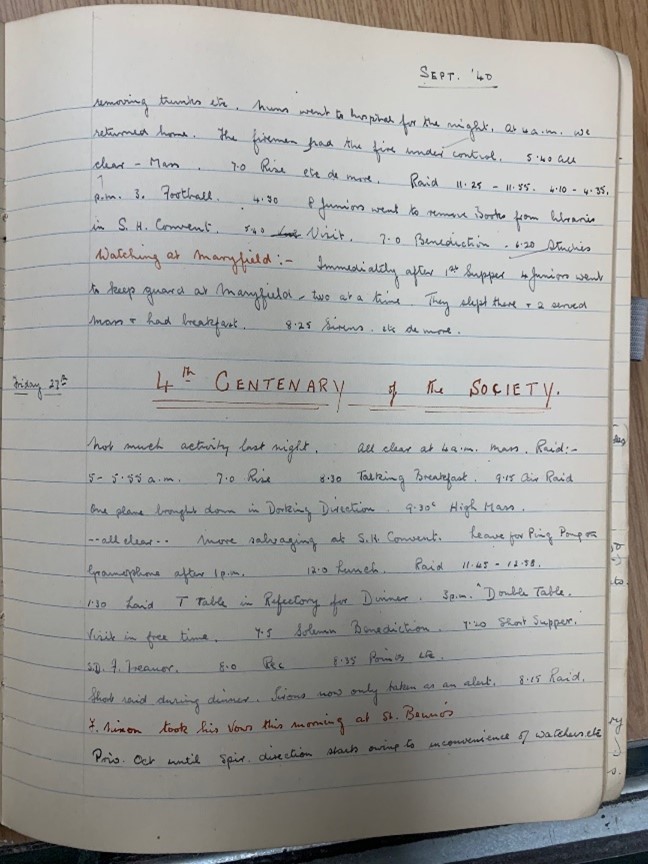 SEPT. '40
removing trunks etc. Nuns went to hospital for the night. At 4 a.m. we
returned home. The firemen had the fire under control. 5.40 all
clear - Mass. 7.0 Rise etc de more. Raid 11.25 - 11.55. 4.10 - 4.35.
p.m. 3. Football. 4.30 8 Juniors went to remove books from libraries
in S. H. Convent. 5.40 Visit. 7.0 Benediction. 6.20 Studies
Watching at Maryfield:- Immediately after 1st Supper 4 Juniors went
to keep guard at Maryfield - two at a time. They slept there + 2 served
mass + had breakfast. 8.25 Sirens. etc de more.
Friday 27th
4th CENTENARY of the SOCIETY.
Not much activity last night. All clear at 4 a.m. Mass. Raid:-
5 - 5.55 a.m. 7.0 Rise 8.30 Talking Breakfast. 9.15 Air Raid
One plane brought down in Dorking Direction. 9.30 High Mass.
--all clear-- More salvaging at S.H. Convent. Leave for Ping Pong or
Gramophone after 1 p.m. 12.0 Lunch. Raid 11.45 - 12.58.
1.30 Laid T Table in Refectory for Dinner. 3 p.m. "Double Table.
Visit in free time. 7.5 Solemn Benediction. 7.20 Short Supper.
S.D. F. Treanor. 8.0 Rec 8.35 Points etc.
Short raid during dinner. Sirens now only taken as an alert. 8.15 Raid.
F. Nixon took his Vows this morning at St. Beuno's
Priv. Oct until Spir. direction starts owing to inconvenience of watchers etc